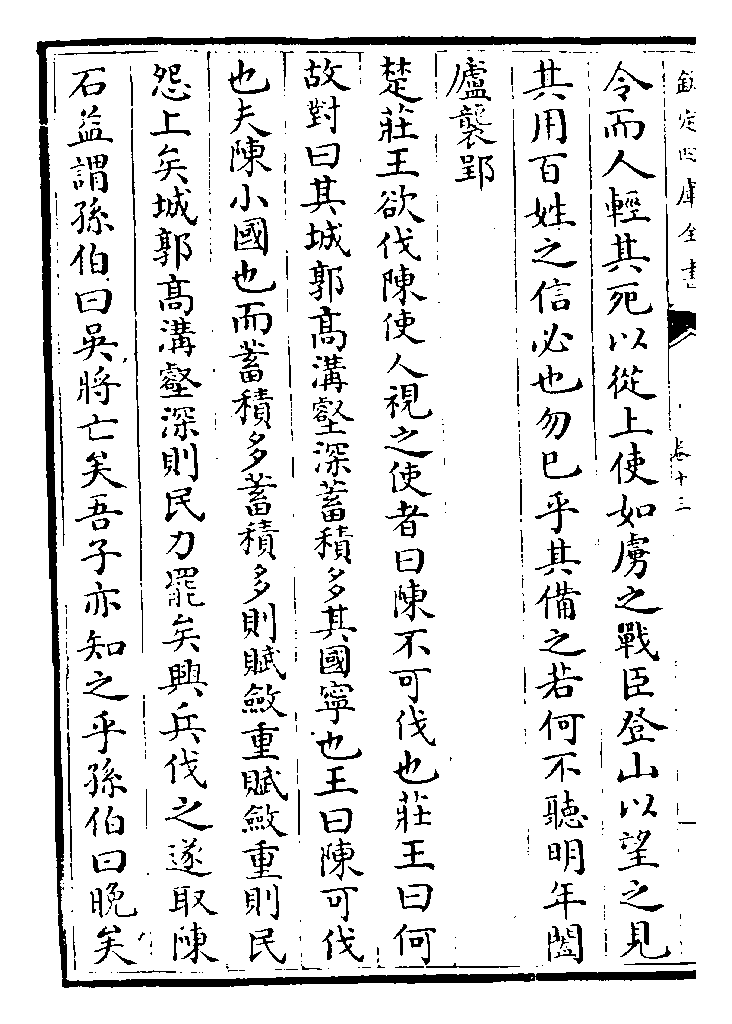 欽定四庫全書
卷十三
令而人輕其死以從上使如虜之戰臣登山以望之見
其用百姓之信必也勿已乎其備之若何不聽明年闔
廬襲郢
楚莊王欲伐陳使人視之使者曰陳不可伐也莊王曰何
故對曰其城郭高溝壑深蓄積多其國寧也王曰陳可伐
也夫陳小國也而蓄積多蓄積多則賦斂重賦斂重則民
怨上矣城郭高溝壑深則民力罷矣興兵伐之遂取陳
石益謂孫伯曰吳將亡矣吾子亦知之乎孫伯曰晚矣